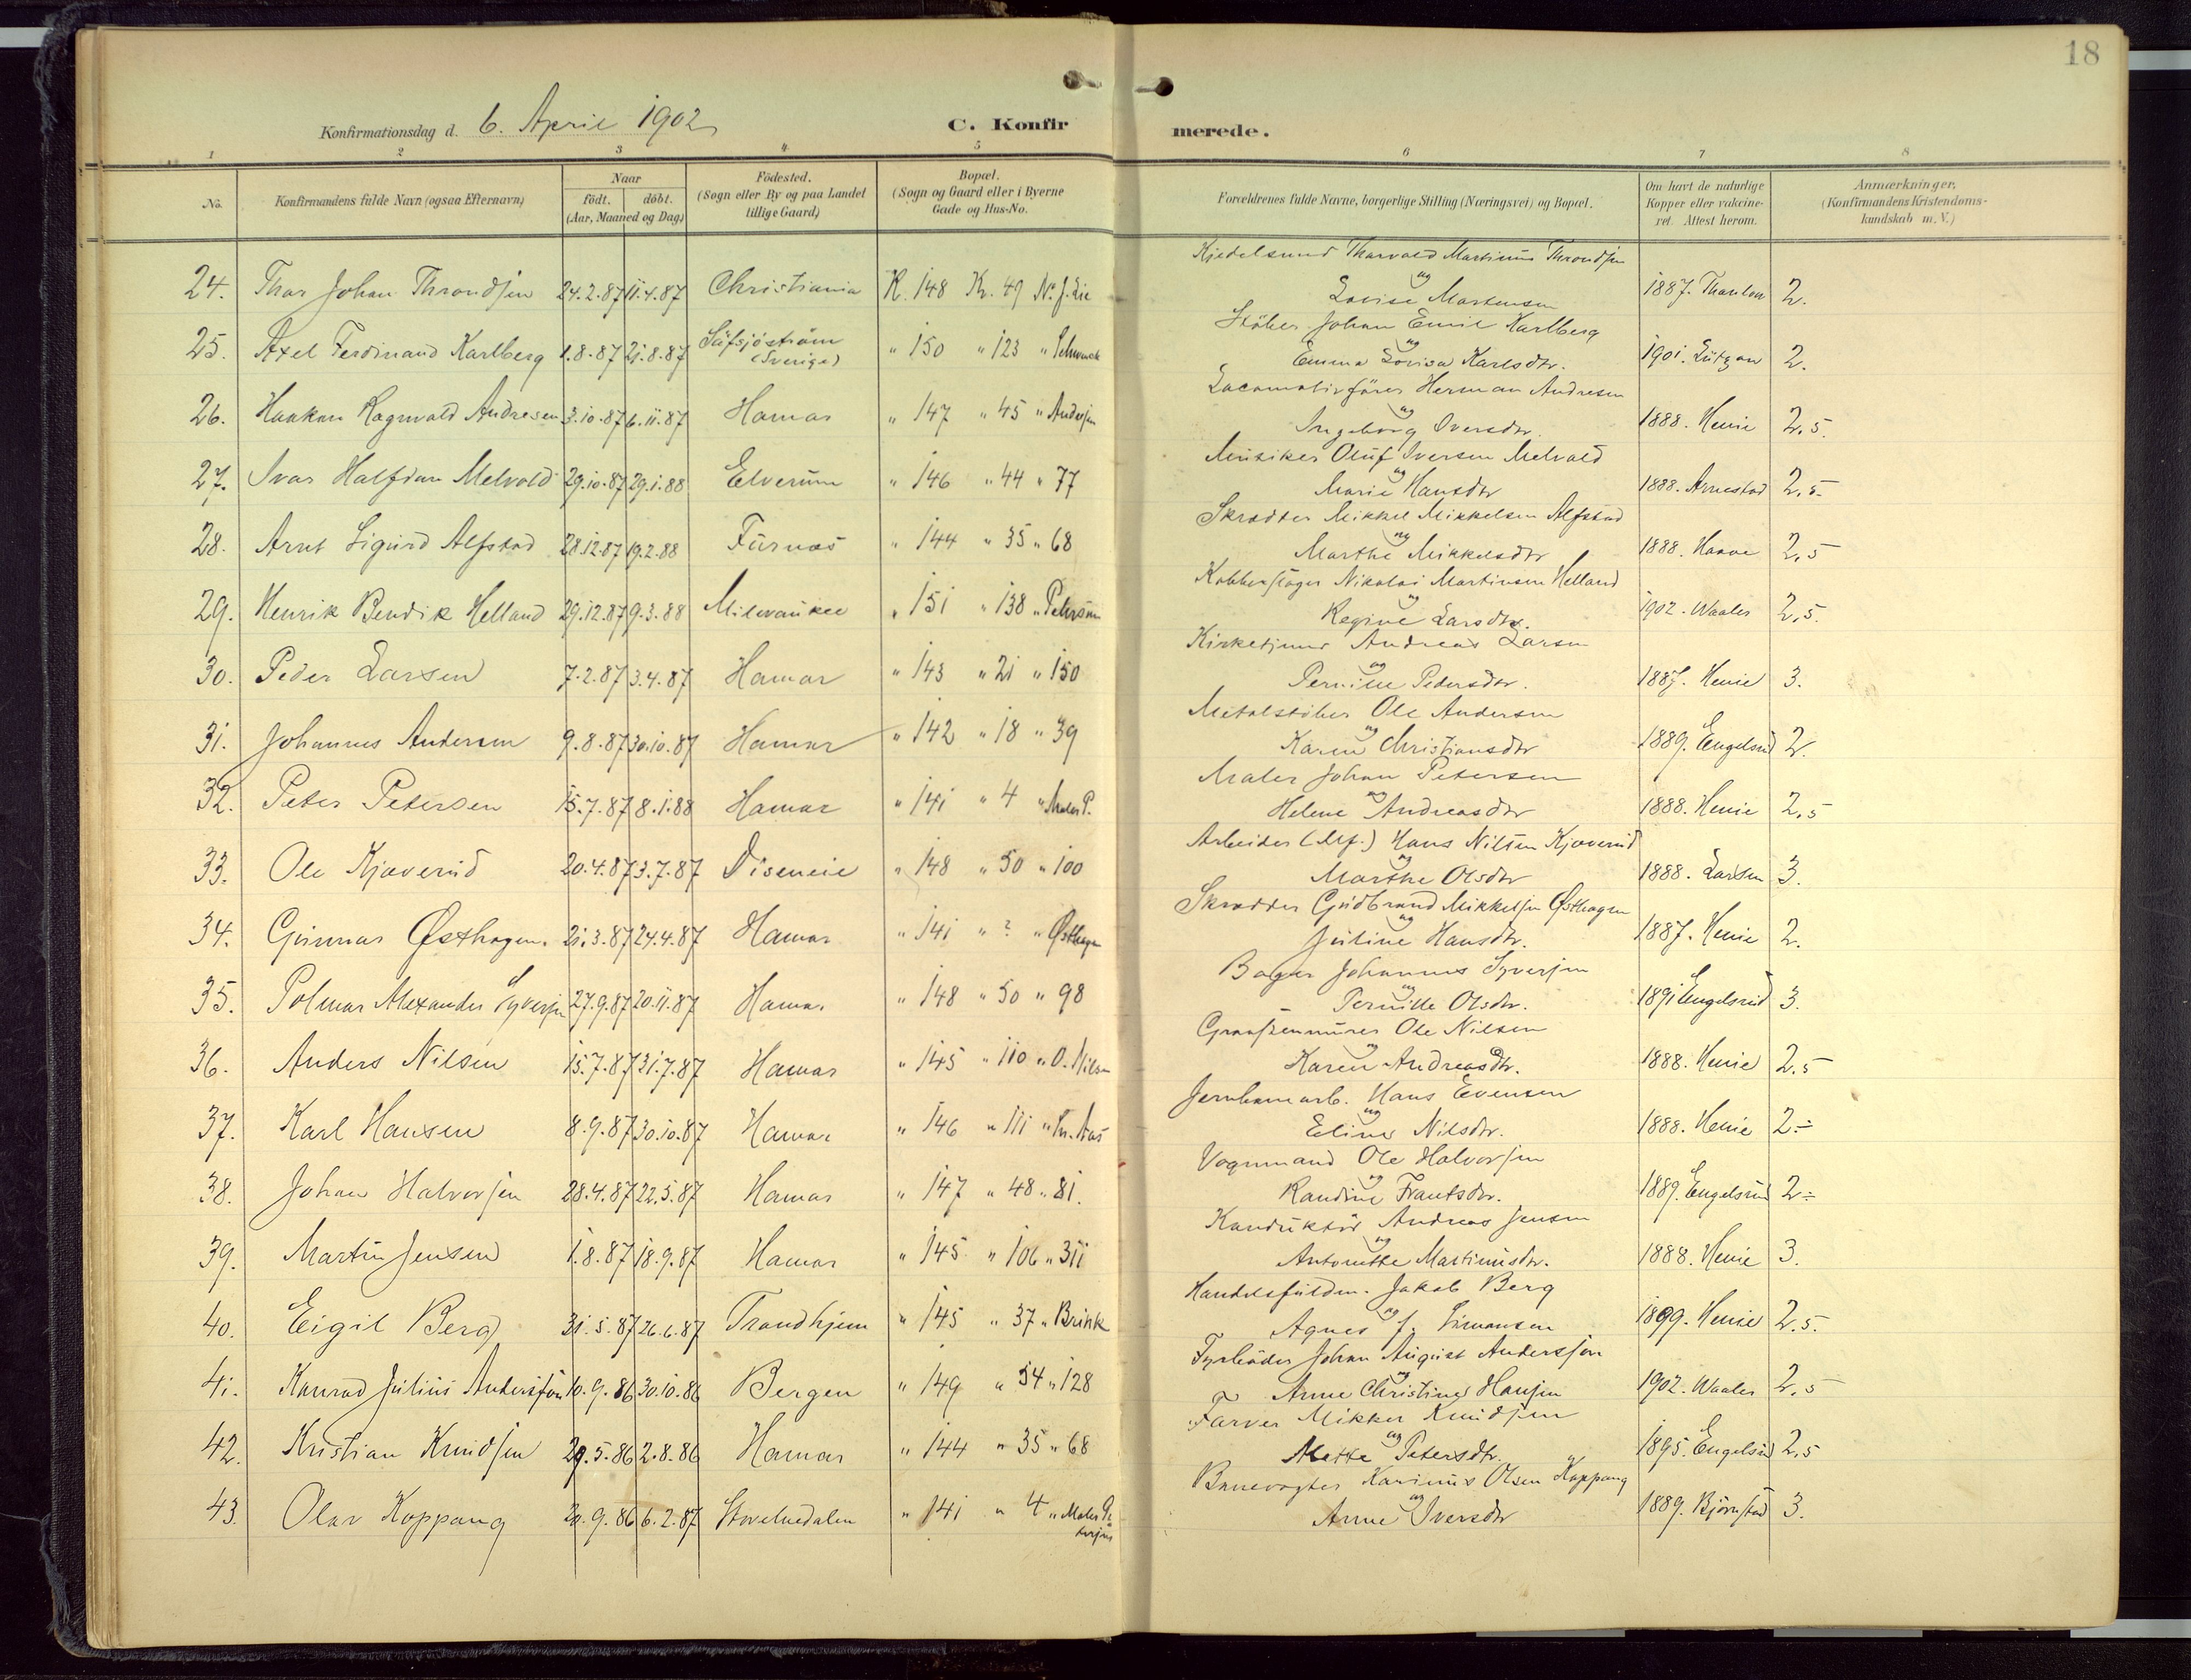 18
Konfirmationsdag d. 6. April 1902
C. Konfirmerede.
1 2 3 4 5 6 7 8
No.
Konfirmandens fulde Navn (ogsaa Efternavn)
Naar
födt. döbt.
(Aar, Maaned og Dag)
Födested.
(Sogn eller By og paa Landet
tillige Gaard)
Bopæl.
(Sogn og Gaard eller i Byerne
Gade og Hus-No.
Forældrenes fulde Navne, borgerlige Stilling (Næringsvei) og Bopæl.
Om havt de naturlige
Kopper eller vakcine-
ret. Attest herom.
Anmærkninger,
(Konfirmandens Kristendoms-
kundskab m. V.)
24. Thor Johan Throndsen 24.2.87 11.4.87 Christiania K. 148 Kr. 49 N. J. Lie Kjedelsmed Thorvald Martinius Throndsen
og
Lovise Martensen 1887. Thaulow 2.
25. Axel Ferdinand Karlberg 1.8.87 21.8.87 Säfsjöström
(Sverige) " 150 " 123 " Schwenck Stöber Johan Emil Karlberg
og
Emma Lovisa Karlsdtr. 1901. Lützow 2.
26. Haakon Ragnvald Andresen 3.10.87 6.11.87 Hamar " 147 " 45 " Andersen Locomotivförer Herman Andresen
og
Ingeborg Iversdtr. 1888. Henie 2,5.
27. Ivar Halfdan Melvold 29.10.87 29.1.88 Elverum " 146 " 44 " 77 Musiker Oluf Iversen Melvold
og
Marie Hansdtr 1888. Arnestad 2,5
28. Arnt Sigurd Alfstad 28.12.87 19.2.88 Furnæs " 144 " 35 " 68 Skrædder Mikkel Mikkelsen Alfstad
og
Marthe Mikkelsdtr 1888. Haave 2,5
29. Henrik Bendik Helland 29.12.87 9.3.88 Milwaukee " 151 " 138 " Petersen Kobberslager Nikolai Martinsen Helland
og
Regine Larsdtr. 1902. Waaler 2,5.
30. Peder Larsen 7.2.87 3.4.87 Hamar " 143 " 21 " 150 Kirketjener Andreas Larsen
og
Pernille Pedersdtr. 1887. Henie 3.
31. Johannes Andersen 9.8.87 30.10.87 Hamar " 142 " 18 " 39 Metalstöber Ole Andersen
og
Karen Christiansdtr 1889. Engelsrud 2.
32. Peter Petersen 15.7.87 8.1.88 Hamar " 141 " 4 " Maler P. Maler Johan Petersen
og
Helene Andreasdtr 1888. Henie 2,5
33. Ole Kjæverud 20.4.87 3.7.87 Diseneie " 148 " 50 " 100 Arbeider (Mf.) Hans Nilsen Kjæverud
og
Marthe Olsdtr 1888. Larsen 3.
34. Gunnar Østhagen. 21.3.87 24.4.87 Hamar " 141 " ? " Østhagen Skrædder Gudbrand Mikkelsen Østhagen
og
Juline Hansdtr. 1887. Henie 2.
35. Polmar Alexander Syversen 27.9.87 20.11.87 Hamar " 148 " 50 " 98 Bager Johannes Syversen
og
Pernille Olsdtr. 1891 Engelsrud 3.
36. Anders Nilsen 15.7.87 31.7.87 Hamar " 145 " 110 " O. Nilsen Graastenmurer Ole Nilsen
og
Karen Andreasdtr. 1888. Henie 2.5
37. Karl Hansen 8.9.87 30.10.87 Hamar " 146 " 111 " Kr. Aas Jernbanearb. Hans Evensen
og
Eline Nilsdtr. 1888. Henie 2÷
38. Johan Halvorsen 28.4.87 22.5.87 Hamar " 147 " 48 " 81. Vognmand Ole Halvorsen
og
Randine Frantsdtr. 1889. Engelsrud 2÷
39. Martin Jensen 1.8.87 18.9.87 Hamar " 145 " 106 " 311 Konduktör Andreas Jensen
og
Antonette Martinusdtr. 1888. Henie 3.
40. Eigil Berg 31.5.87 26.6.87 Trondhjem " 145 " 37 " Brink Handelsfuldm. Jakob Berg
og
Agnes J. Simonsen 1899. Henie 2.5.
41. Konrad Julius Andersson 10.9.86 30.10.86 Bergen " 149 " 54 " 128 Fyrböder Johan August Andersson
og
Anne Christine Hansen 1902. Waaler 2.5
42. Kristian Knudsen 29.5.86 2.8.86 Hamar " 144 " 35 " 68 Farver Mikkel Knudsen
og
Mette Petersdtr. 1895. Engelsrud 2,5
43. Olav Koppang 20.9.86 6.2.87 Storelvedalen " 141 " 4 " Maler Pe
tersens Banevogter Karinus Olsen Koppang
og
Anne Iversdtr 1889. Björnstad 3.